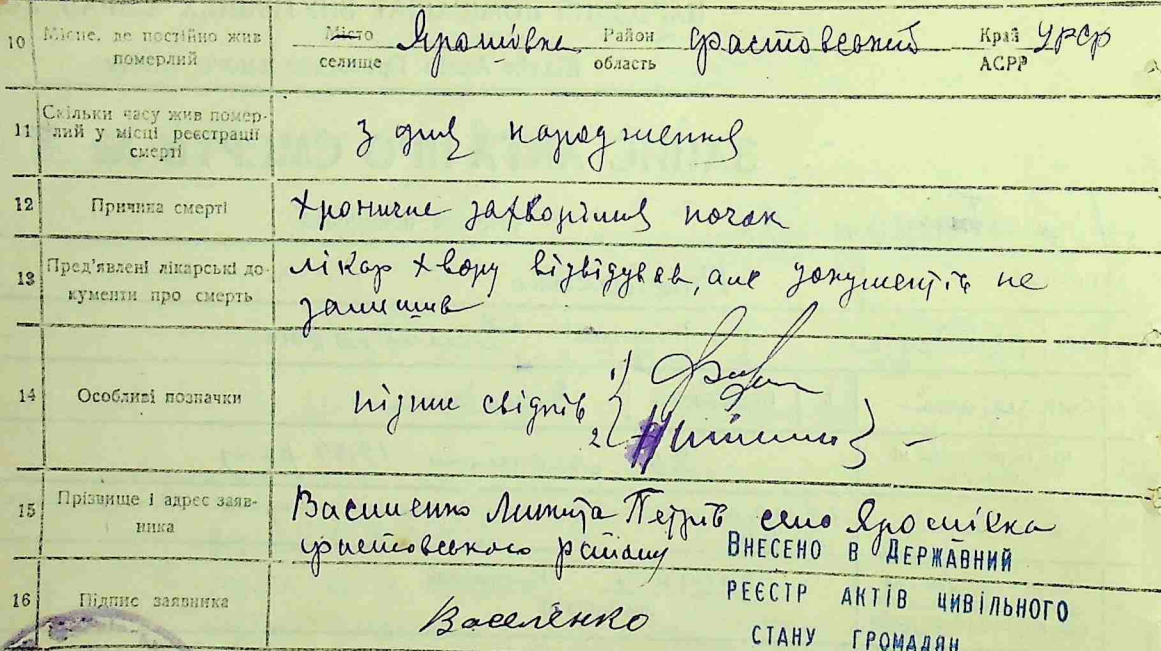 10 Місце, де постійно жив померлий Місто селище Ярошівка Район область Фастовський Край АСРР УРСР
11 Скільки часу жив помер-
лий у місці реєстрації
смерті
З дня народження
12 Причина смерті Хроничне захворіння почок
13 Пред'явлені лікарські до-
кументи про смерть
лікар хвору відвідував, але документів не
залишив
14 Особливі позначки підпис свідків 1) 2)
15 Прізвище і адрес заяв-
ника
Василенко Микита Петрів село Ярошівка
Фастовського району
16 Підпис заявника Василенко
ВНЕСЕНО В ДЕРЖАВНИЙ
РЕЄСТР АКТІВ ЦИВІЛЬНОГО
СТАНУ ГРОМАДЯН